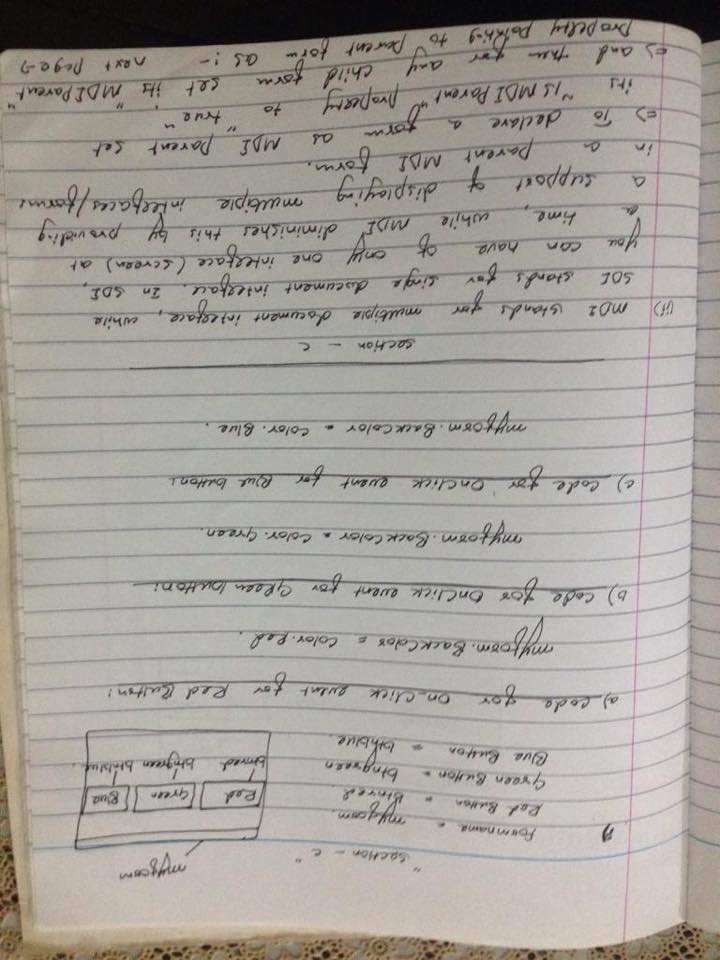 "section - c"
1) Formname = myform.
Red Button = btnred.
Green Button = btngreen
Blue Button = btnblue.
myform
Red Green Blue
btnred btngreen btnblue
a) code for On-click event for Red Button:
myform.BackColor = color.Red.
b) code for Onclick event for Green button:
myform.BackColor = color.Green.
c) code for Onclick event for Blue button:
myform.BackColor = color.Blue.
section - c
(ii) MDI stands for multiple document interface, while
SDI stands for single document interface. In SDI,
you can have of only one interface (screen) at
a time, while MDI diminishes this by providing
a support of displaying multiple interfaces/forms
in a parent MDI form.
=) To declare a form as MDI Parent set
its "IS MDI Parent" property to "true"
=) and then for any child form set its "MDI Parent"
property pointing to parent form as :- next page →